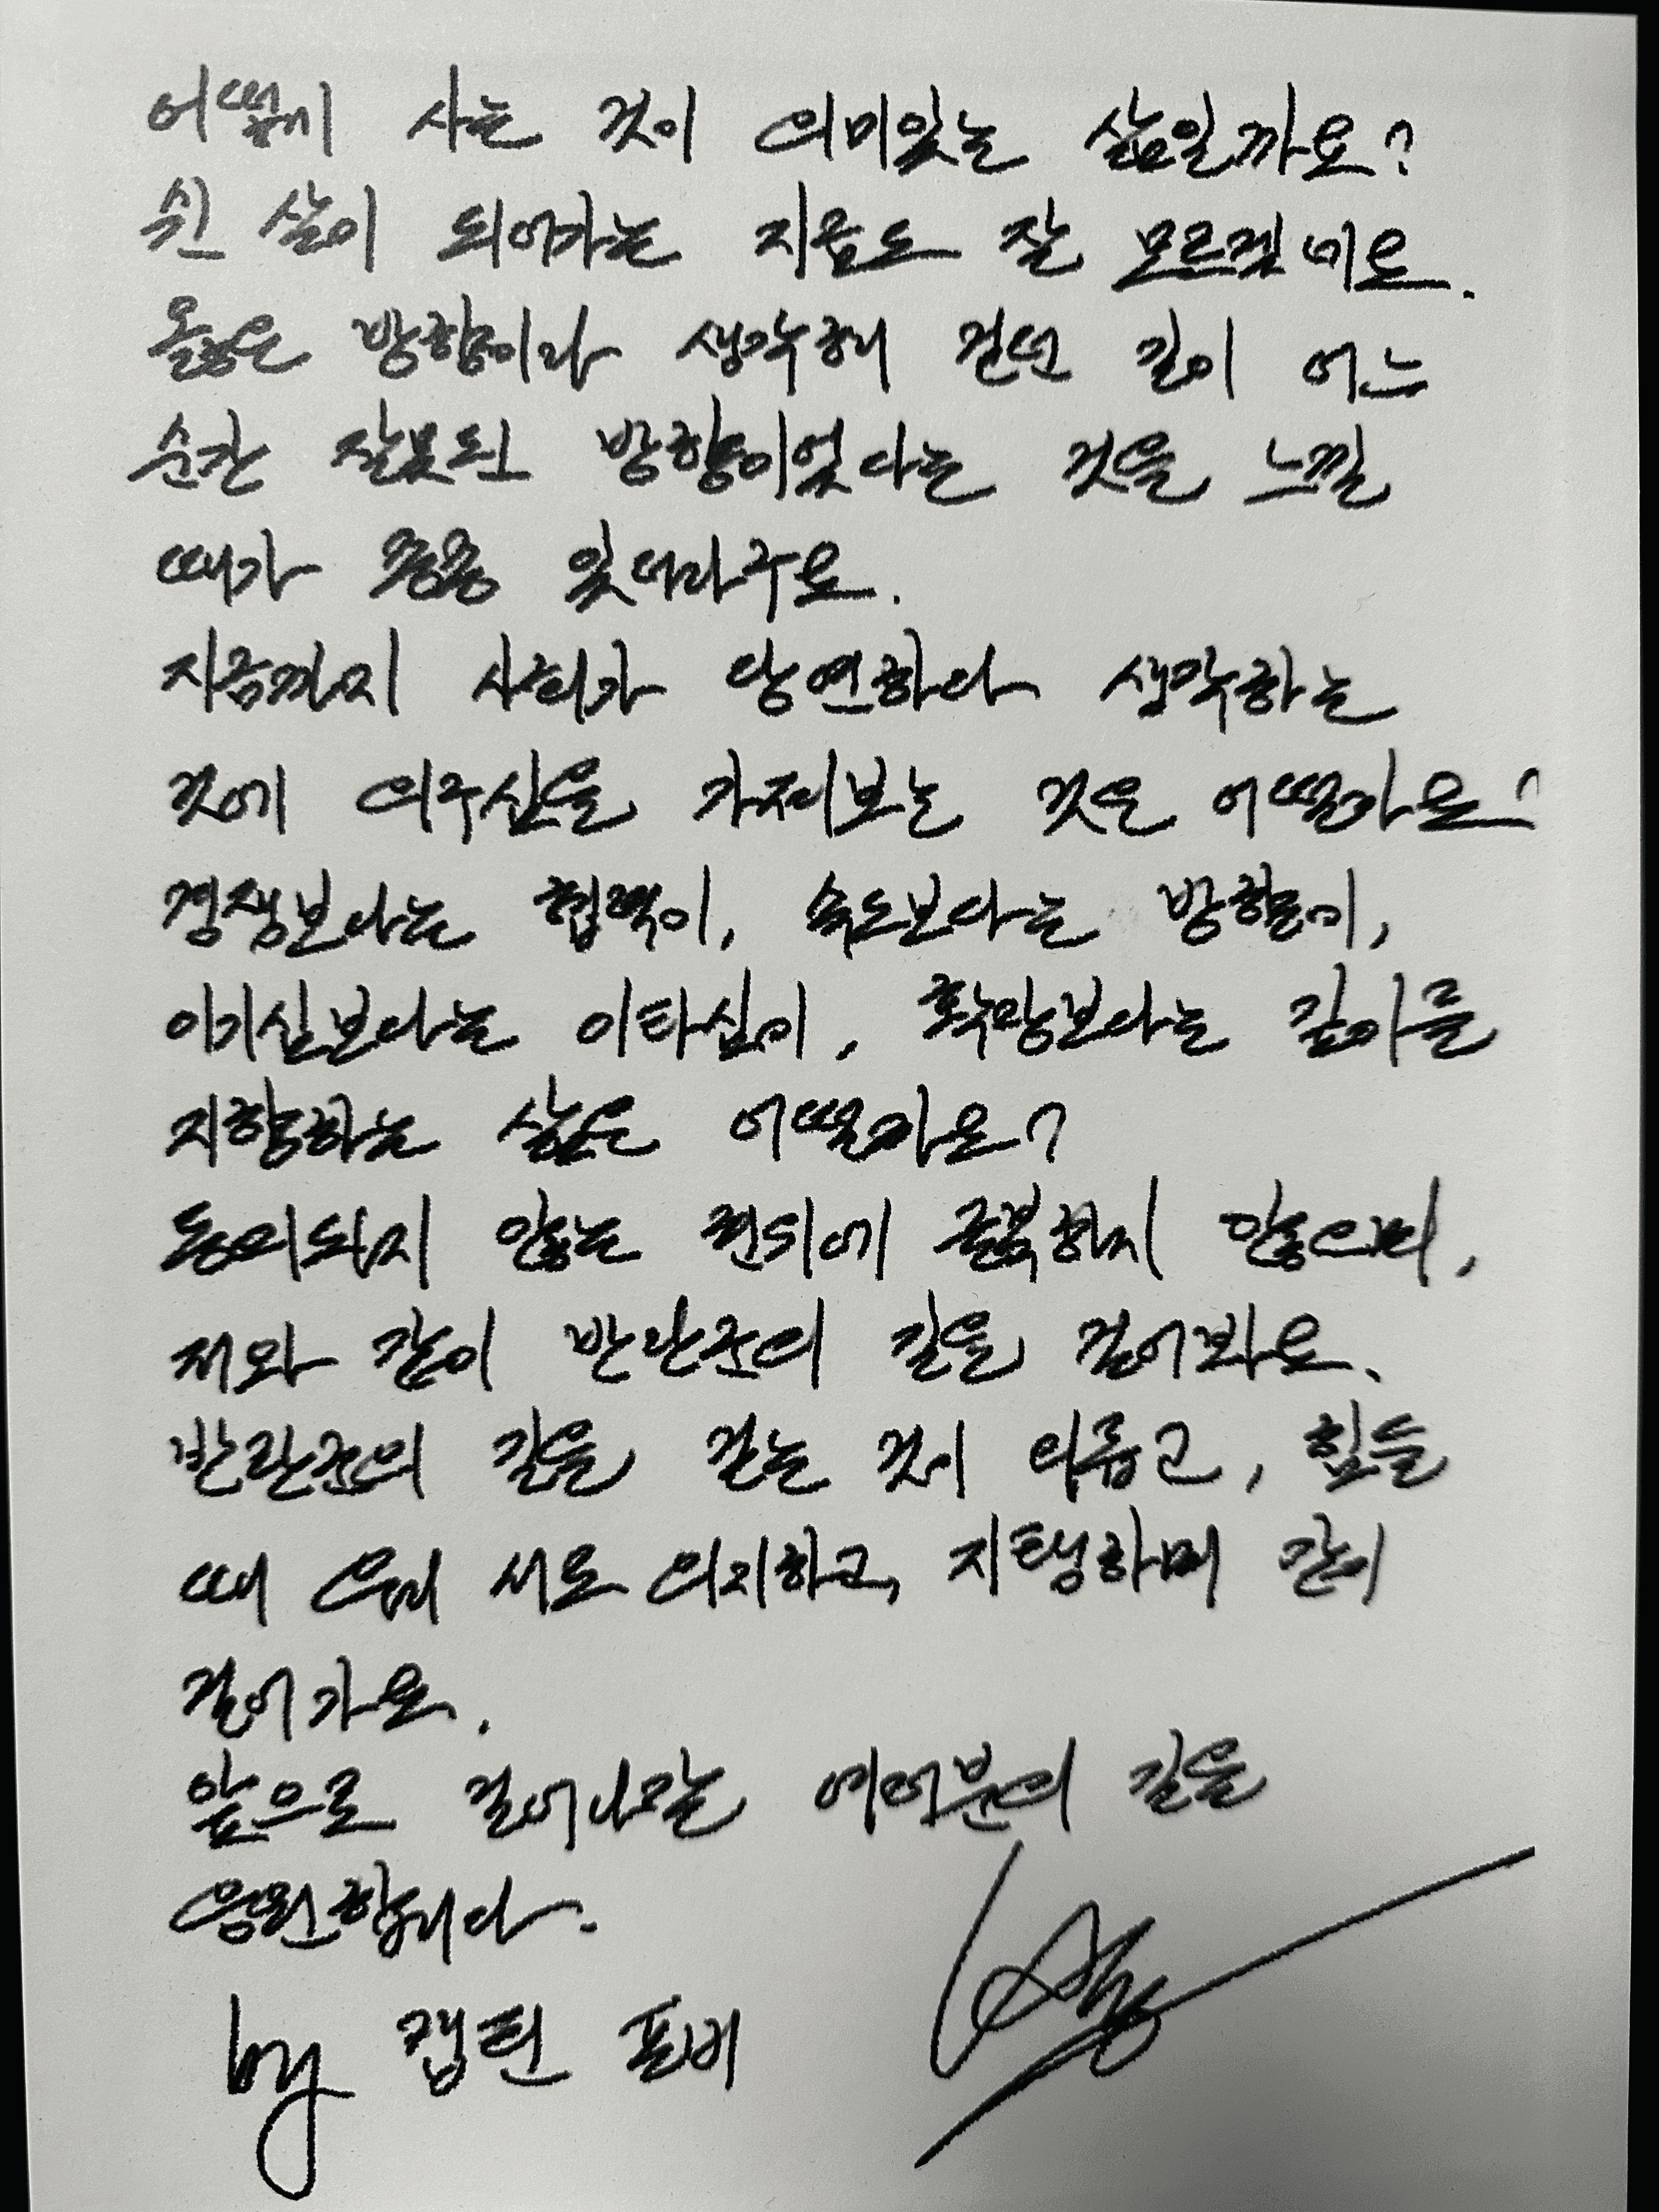 어떻게 사는 것이 의미있는 삶일까요?
쉰 살이 되어가는 지금도 잘 모르겠네요.
옳은 방향이라 생각해 걷던 길이 어느
순간 잘못된 방향이었다는 것을 느낄
때가 종종 있더라구요.
지금까지 사회가 당연하다 생각하는
것에 의구심을 가져보는 것은 어떨까요?
경쟁보다는 협력이, 속도보다는 방향이,
이기심보다는 이타심이, 확장보다는 깊이를
지향하는 삶은 어떨까요?
동의되지 않는 권위에 굴복하지 않으며,
저와 같이 반란군의 길을 걸어봐요.
반란군의 길을 걷는 것이 외롭고, 힘들
때 우리 서로 의지하고, 지탱하며 같이
걸어가요.
앞으로 걸어나갈 여러분의 길을
응원합니다.
by 캡틴 폴비